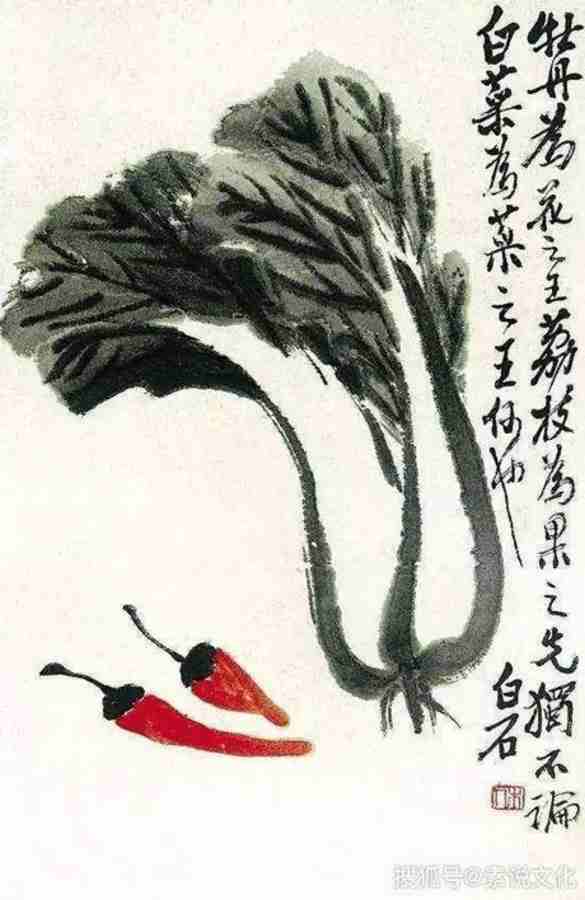 牡丹為花之王荔枝為果之先獨不論
白菜為菜之王何也
白石
搜狐号@素说文化